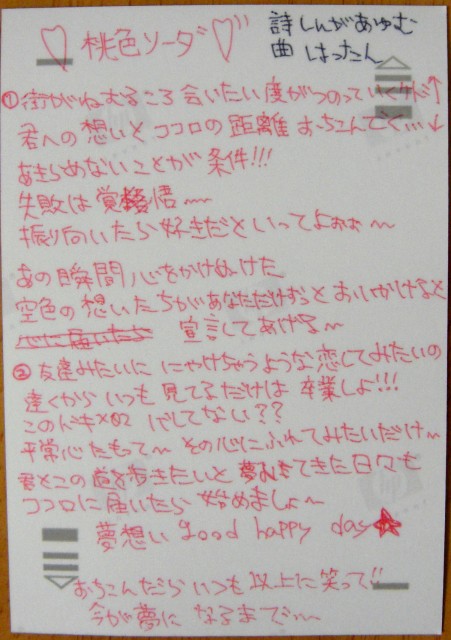 ♡桃色ソーダ♡
詩 しんがあゆむ
曲 はったん
① 街がねむるころ 会いたい度がつのっていくケド↑
君への想いとココロの距離 おっこんでく…↓
あきらめないことが条件!!!
失敗は覚悟〜
振り向いたら好きだといってよぉぉ〜
あの瞬間 心をかけぬけた
空色の想いたちがあなただけずっとおいかけるなと
宣言してあげる〜
② 友達みたいに にやけちゃうような恋してみたいの
遠くから いつも 見てるだけは 卒業しよ!!!
このドキ×02 バレてない??
平常心たもって〜 その心にふれてみたいだけ〜
君とこの道を歩きたいと 夢みてきた日々も
ココロに届いたら 始めましょ〜
夢想い good happy day☆
おちこんだら いつも以上に笑って!!
今が夢に なるまで…〜